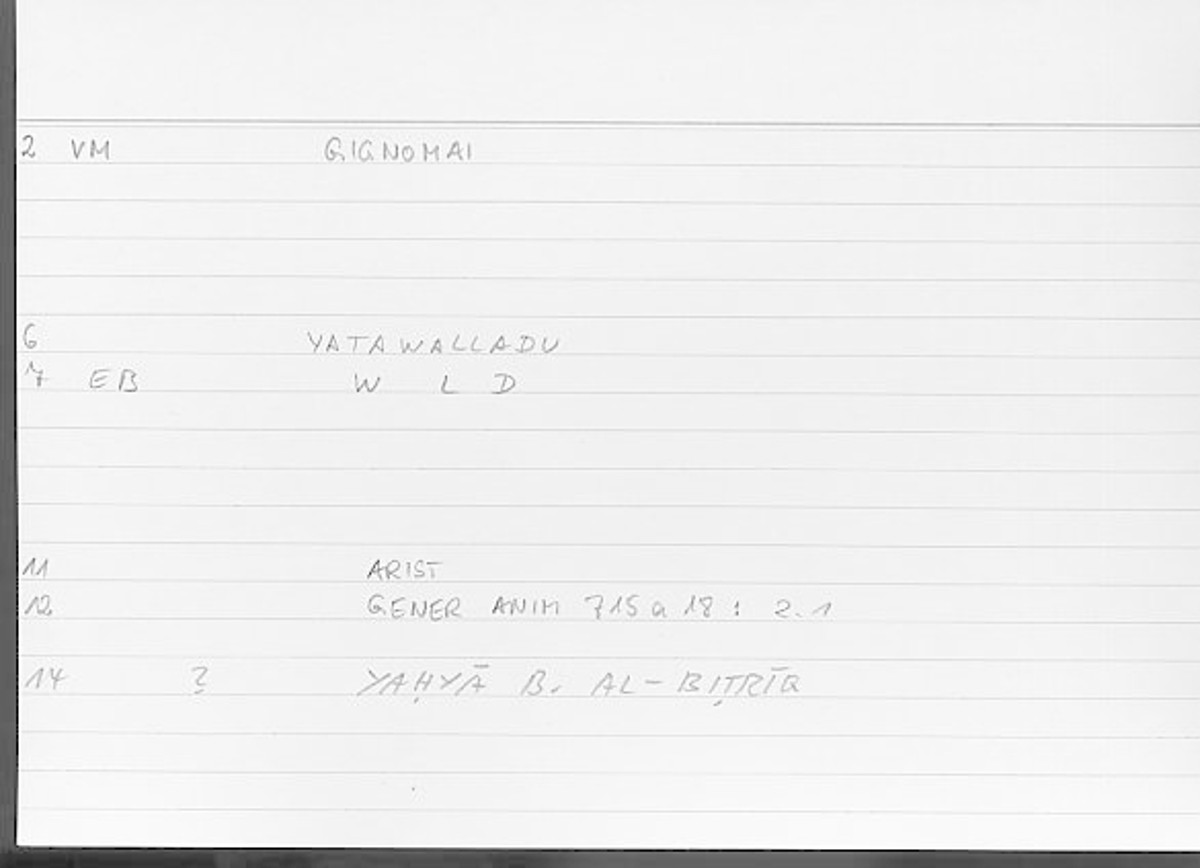 2 VM GIGNOMAI
6 YATAWALLADU
7 EB W L D
11 ARIST
12 GENER ANIM 715 a 18 : 2.1
14 ? YAḤYĀ B. AL-BIṬRĪQ